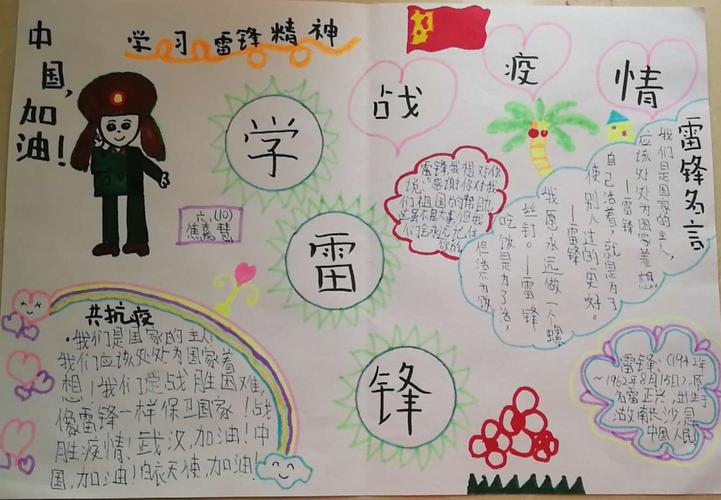 中国,加油!
学习雷锋精神
战疫情
学
雷
锋
六、(10)
共抗疫
我们是国家的主人
我们应该处处为国家着
想!我们定战胜困难,
像雷锋一样保卫国家!战
胜疫情!武汉,加油!中
国,加油!白衣天使,加油!
雷锋,我想对你
说:感谢你对我
们祖国的帮助
雷锋名言
我们是国家的主人,
应该处处为国家着想
—雷锋
自己活着,就是为了
使别人过的更好。
—雷锋
我愿永远做一个螺
丝钉。—雷锋
吃饭是为了活,
但活不为饭
雷锋,(1942年
~1962年8月15日),原
名雷正兴,出生于
湖南长沙,是
中国人民